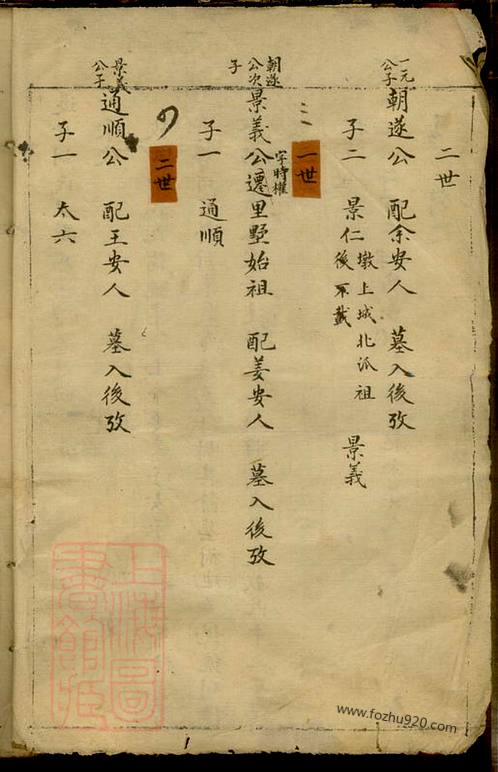 二世
一元公子 朝遂公 配余安人 墓入後攷
子二 景仁 墩上城北派祖後不載 景義
一世
朝遂公次子 景義公 字時權 遷里墅始祖 配姜安人 墓入後攷
子一 通順
二世
景義公子 通順公 配王安人 墓入後攷
子一 太六
上海圖書館藏
www.fozhu920.com